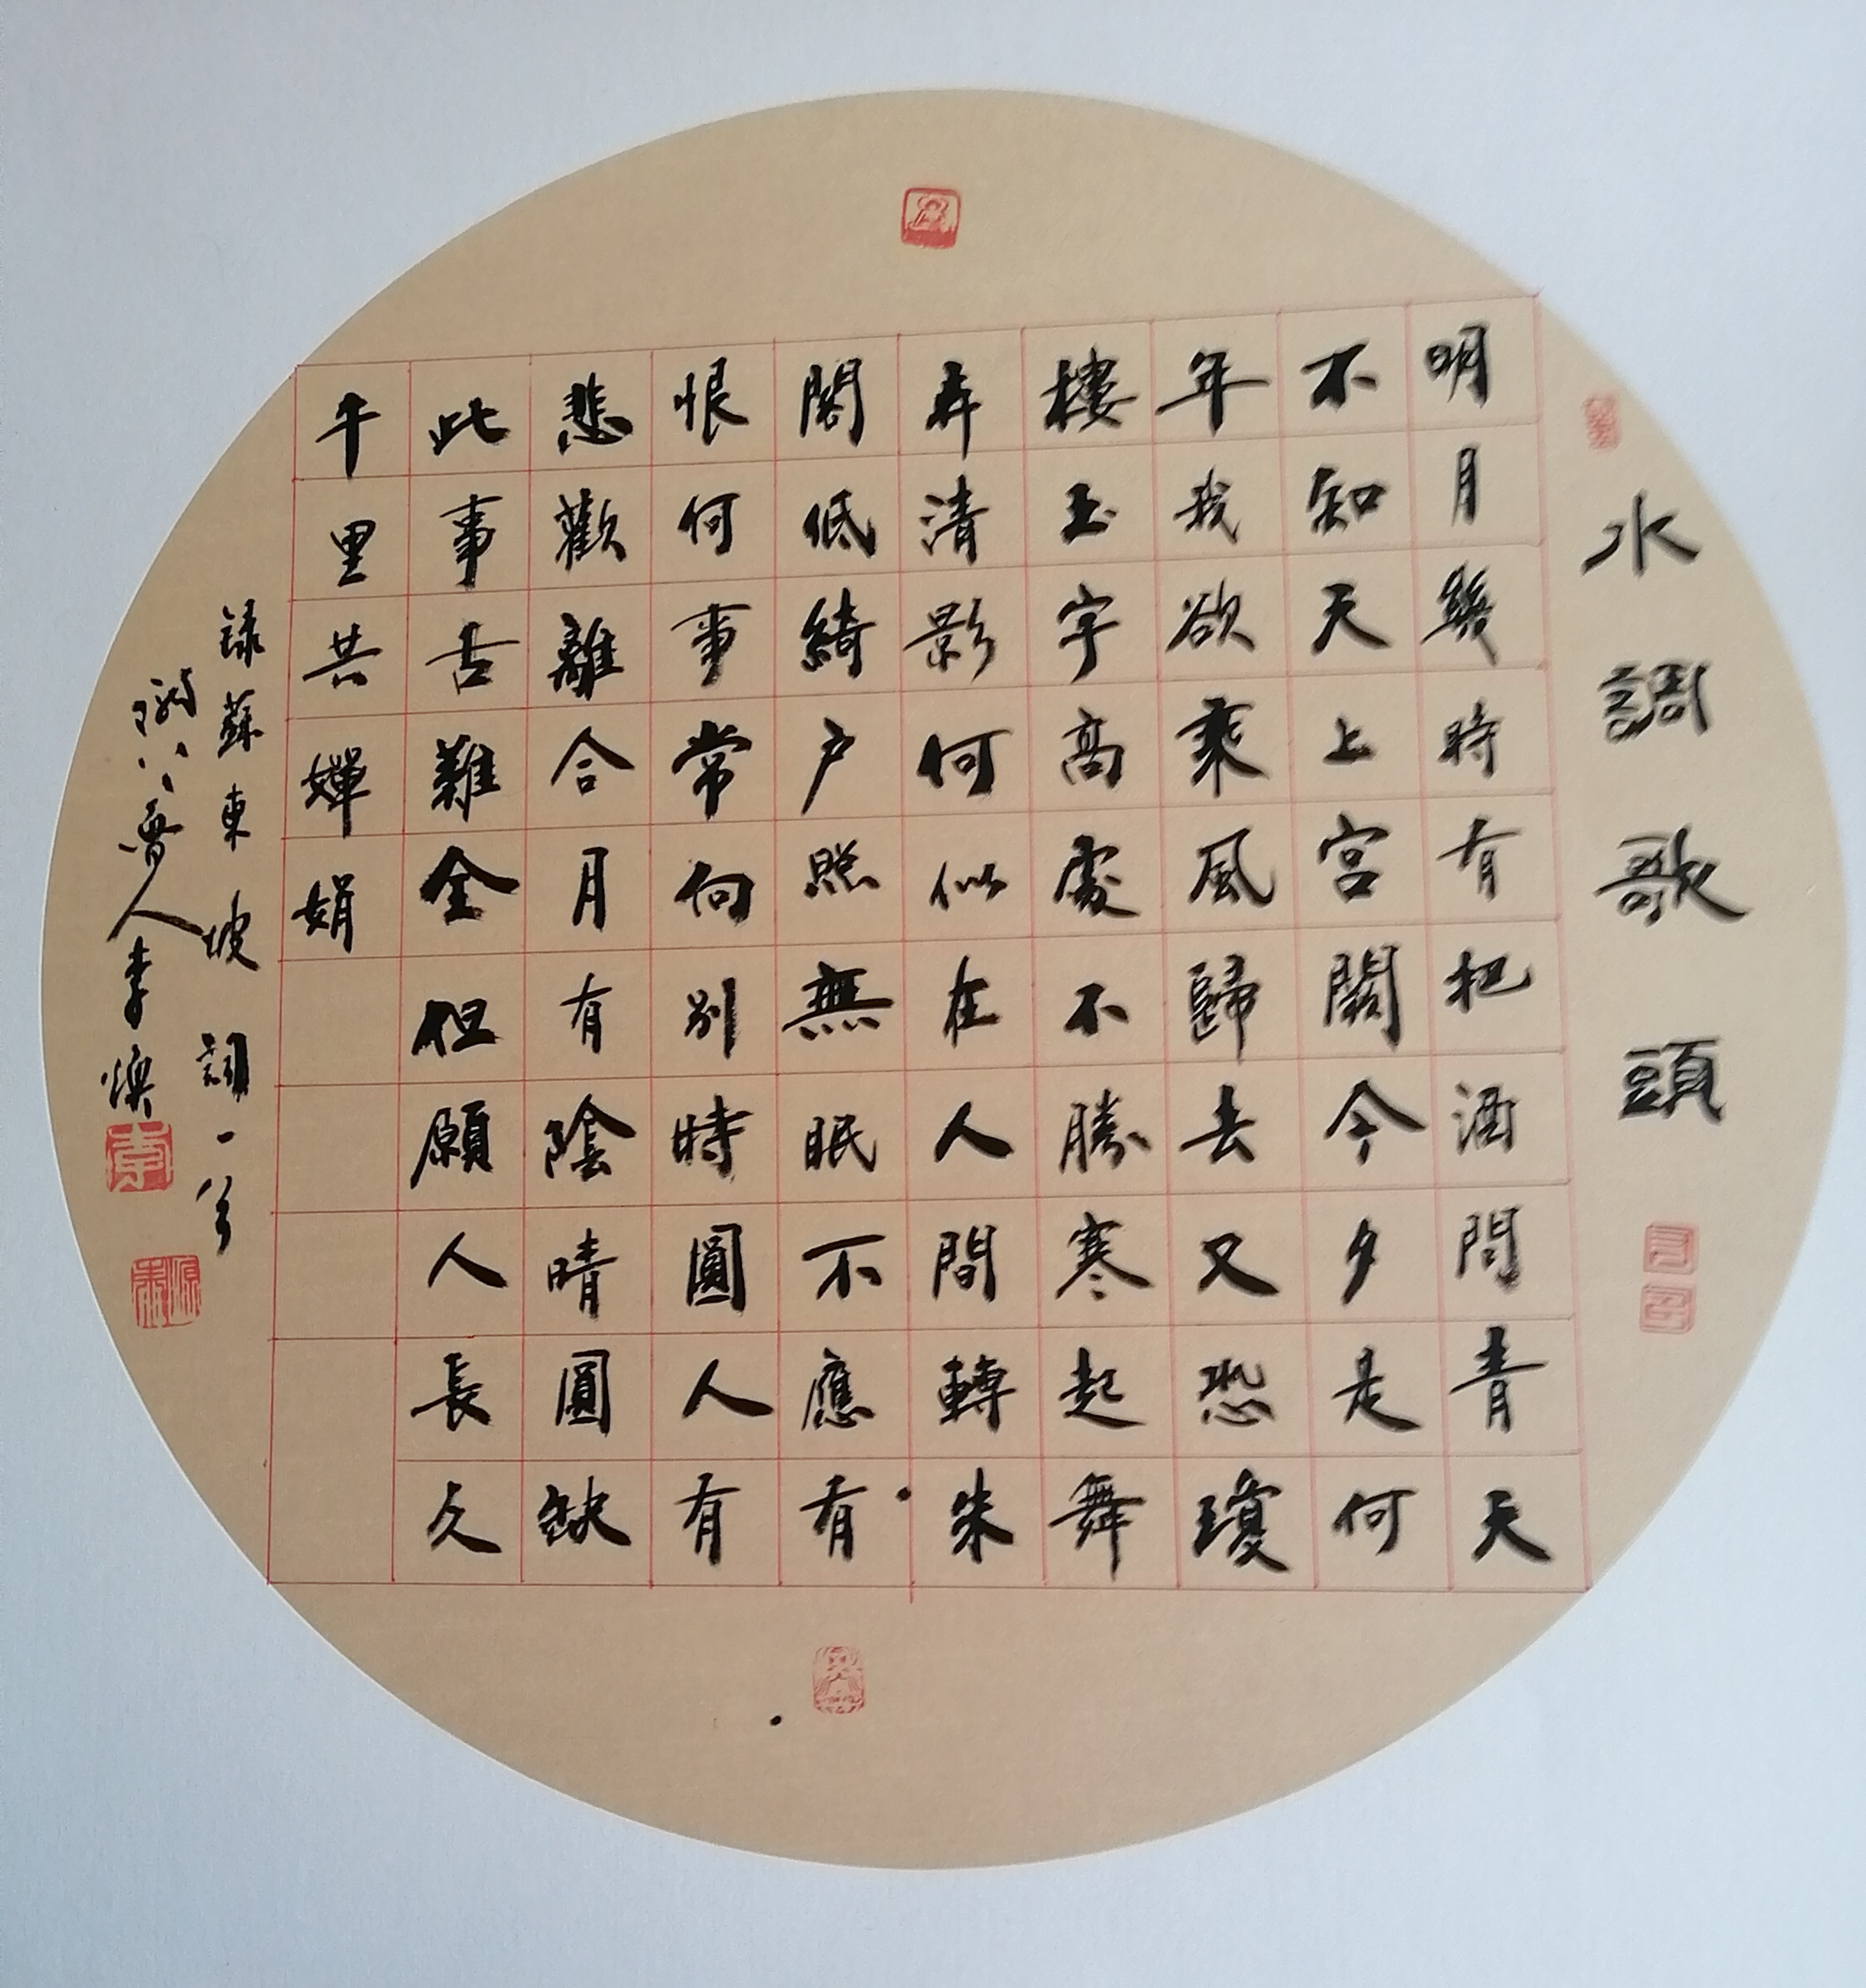 水調歌頭
明月幾時有把酒問青天
不知天上宫闕今夕是何
年我欲乘風歸去又恐瓊
樓玉宇高處不勝寒起舞
弄清影何似在人間轉朱
閣低綺户照無眠不應有
恨何事常向别時圓人有
悲歡離合月有陰晴圓缺
此事古難全但願人長久
千里共嬋娟
録蘇東坡詞一首
人李焕